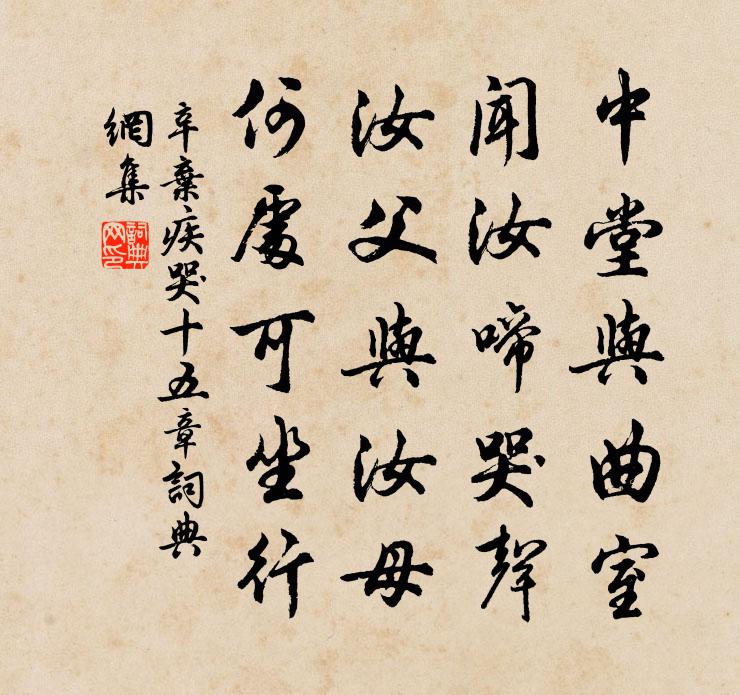 中堂與曲室
聞汝啼哭聲
汝父與汝母
何處可坐行
辛棄疾哭十五章詞典
網集
詞典
网印